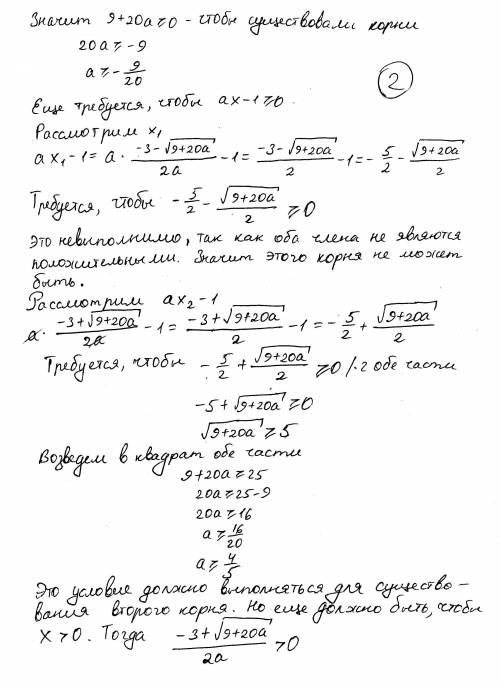 Значит 9+20a ≥ 0 - чтобы существовали корни
20a ≥ -9
a ≥ -9/20
2
Еще требуется, чтобы ax-1 ≥ 0.
Рассмотрим x₁
ax₁-1 = a · (-3-√(9+20a))/(2a) -1 = (-3-√(9+20a))/2 -1 = -5/2 - √(9+20a)/2
Требуется, чтобы -5/2 - √(9+20a)/2 ≥ 0
Это невыполнимо, так как оба члена не являются
положительными. Значит этого корня не может
быть.
Рассмотрим ax₂-1
a · (-3+√(9+20a))/(2a) -1 = (-3+√(9+20a))/2 -1 = -5/2 + √(9+20a)/2
Требуется, чтобы -5/2 + √(9+20a)/2 ≥ 0 /·2 обе части
-5+√(9+20a) ≥ 0
√(9+20a) ≥ 5
Возведем в квадрат обе части
9+20a ≥ 25
20a ≥ 25-9
20a ≥ 16
a ≥ 16/20
a ≥ 4/5
Это условие должно выполняться для существо-
вания второго корня. Но еще должно быть, чтобы
x > 0. Тогда (-3+√(9+20a))/(2a) > 0